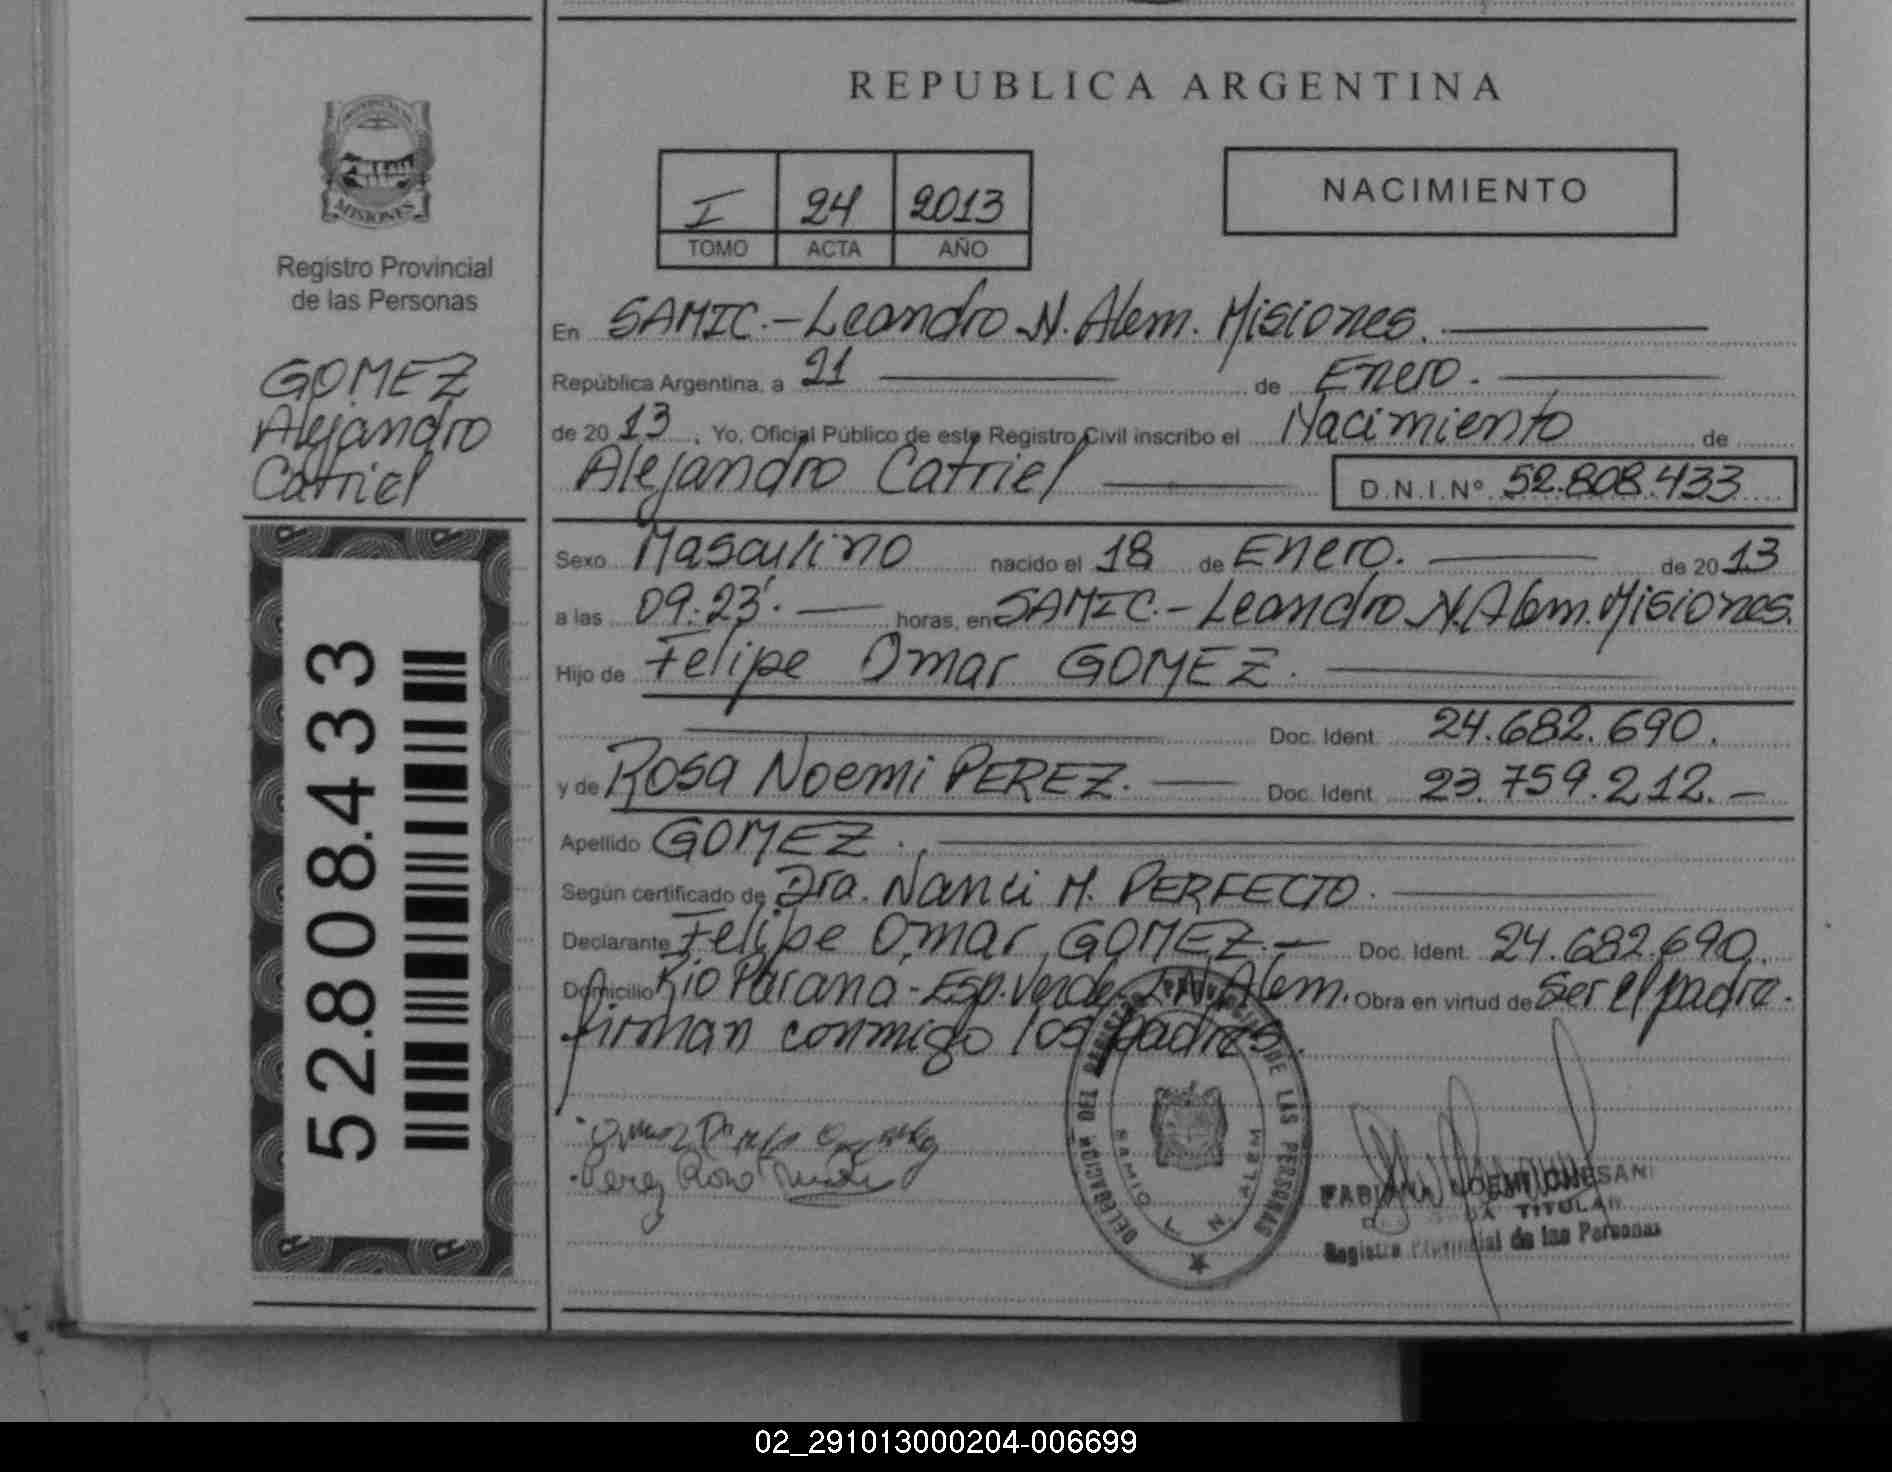 REPUBLICA ARGENTINA
MISIONES
Registro Provincial
de las Personas
GOMEZ
Alejandro
Catriel
52.808.433
I 24 2013
TOMO ACTA AÑO
NACIMIENTO
En SAMIC.-Leandro N. Alem. Misiones.
República Argentina, a 21 de Enero.
de 2013, Yo, Oficial Público de este Registro Civil inscribo el Nacimiento de
Alejandro Catriel D.N.I.Nº 52.808.433
Sexo Masculino nacido el 18 de Enero. de 2013
a las 09.23'. horas, en SAMIC.-Leandro N. Alem. Misiones.
Hijo de Felipe Omar GOMEZ.
Doc. Ident. 24.682.690.
y de Rosa Noemi PEREZ. Doc. Ident. 23.759.212.-
Apellido GOMEZ.
Según certificado de Dra. Nanci M. PERFECTO.
Declarante Felipe Omar GOMEZ.- Doc. Ident. 24.682.690.
Domicilio Rio Parana-Esp.Verde-L.N.Alem. Obra en virtud de Ser el padre.
firman conmigo los padres.
Perez Rosa
DELEGACION DEL REGISTRO PROVINCIAL DE LAS PERSONAS
SAMIC L. N. ALEM
NOEMI
TITULAR
Registro Provincial de las Personas
02_291013000204-006699